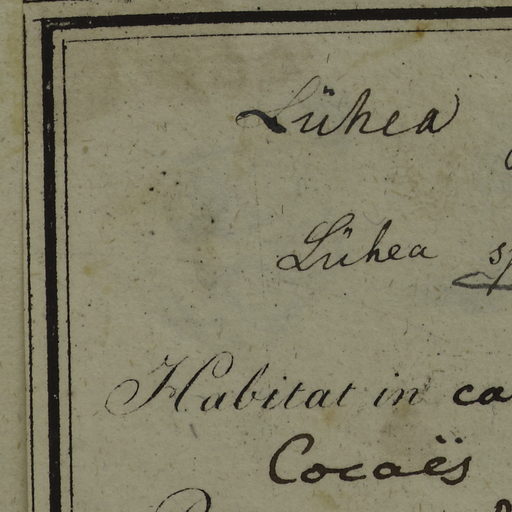 Lühea
Lühea
Habitat in
Cocaës